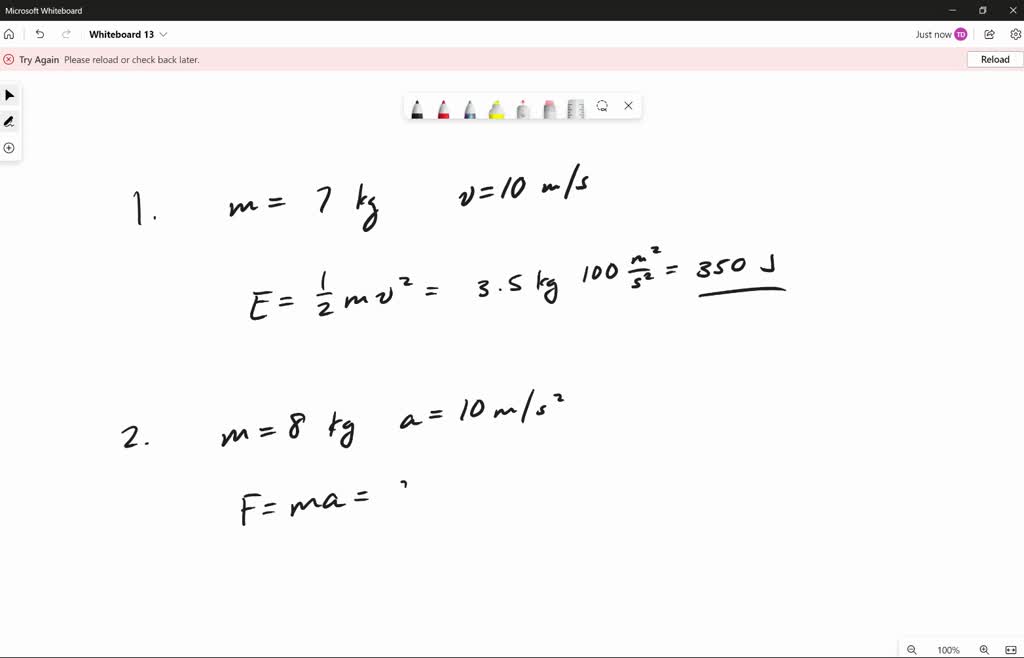 Microsoft Whiteboard
Whiteboard 13
Just now TD
Try Again Please reload or check back later.
Reload
1. m = 7 kg v = 10 m/s
E = 1/2 m v² = 3.5 kg 100 m²/s² = 350 J
2. m = 8 kg a = 10 m/s²
F = ma =
100%